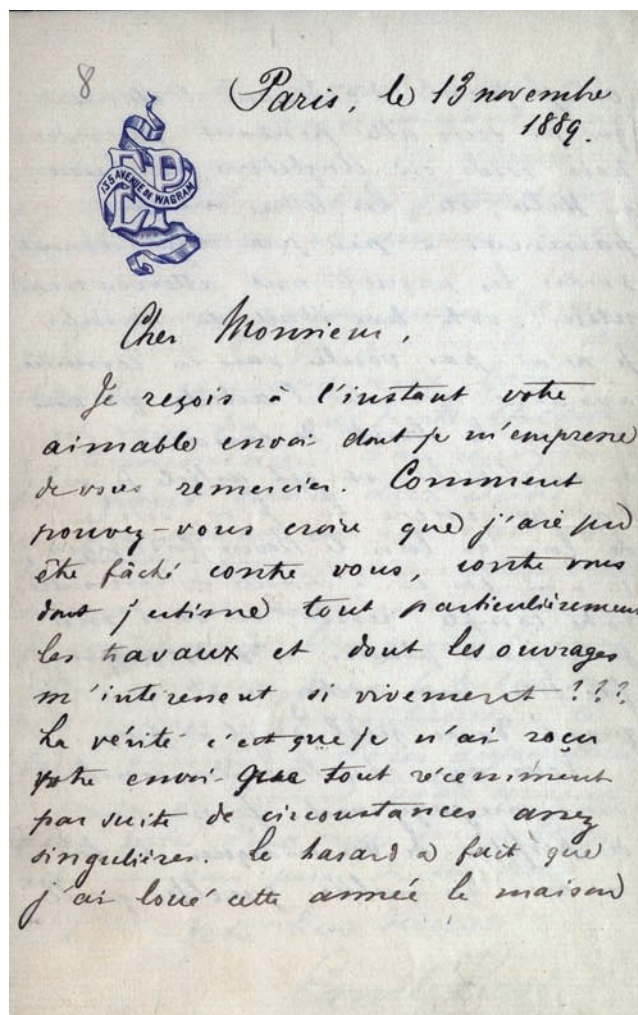 8
Paris, le 13 novembre
1889.
135 AVENUE DE WAGRAM
Cher Monsieur,
Je reçois à l'instant votre
aimable envoi dont je m'empresse
de vous remercier. Comment
pouvez-vous croire que j'aie pu
être fâché contre vous, contre vous
dont j'estime tout particulièrement
les travaux et dont les ouvrages
m'intéressent si vivement ???
La vérité c'est que je n'ai reçu
votre envoi que tout récemment
par suite de circonstances assez
singulières. Le hasard a fait que
j'ai loué cette année la maison